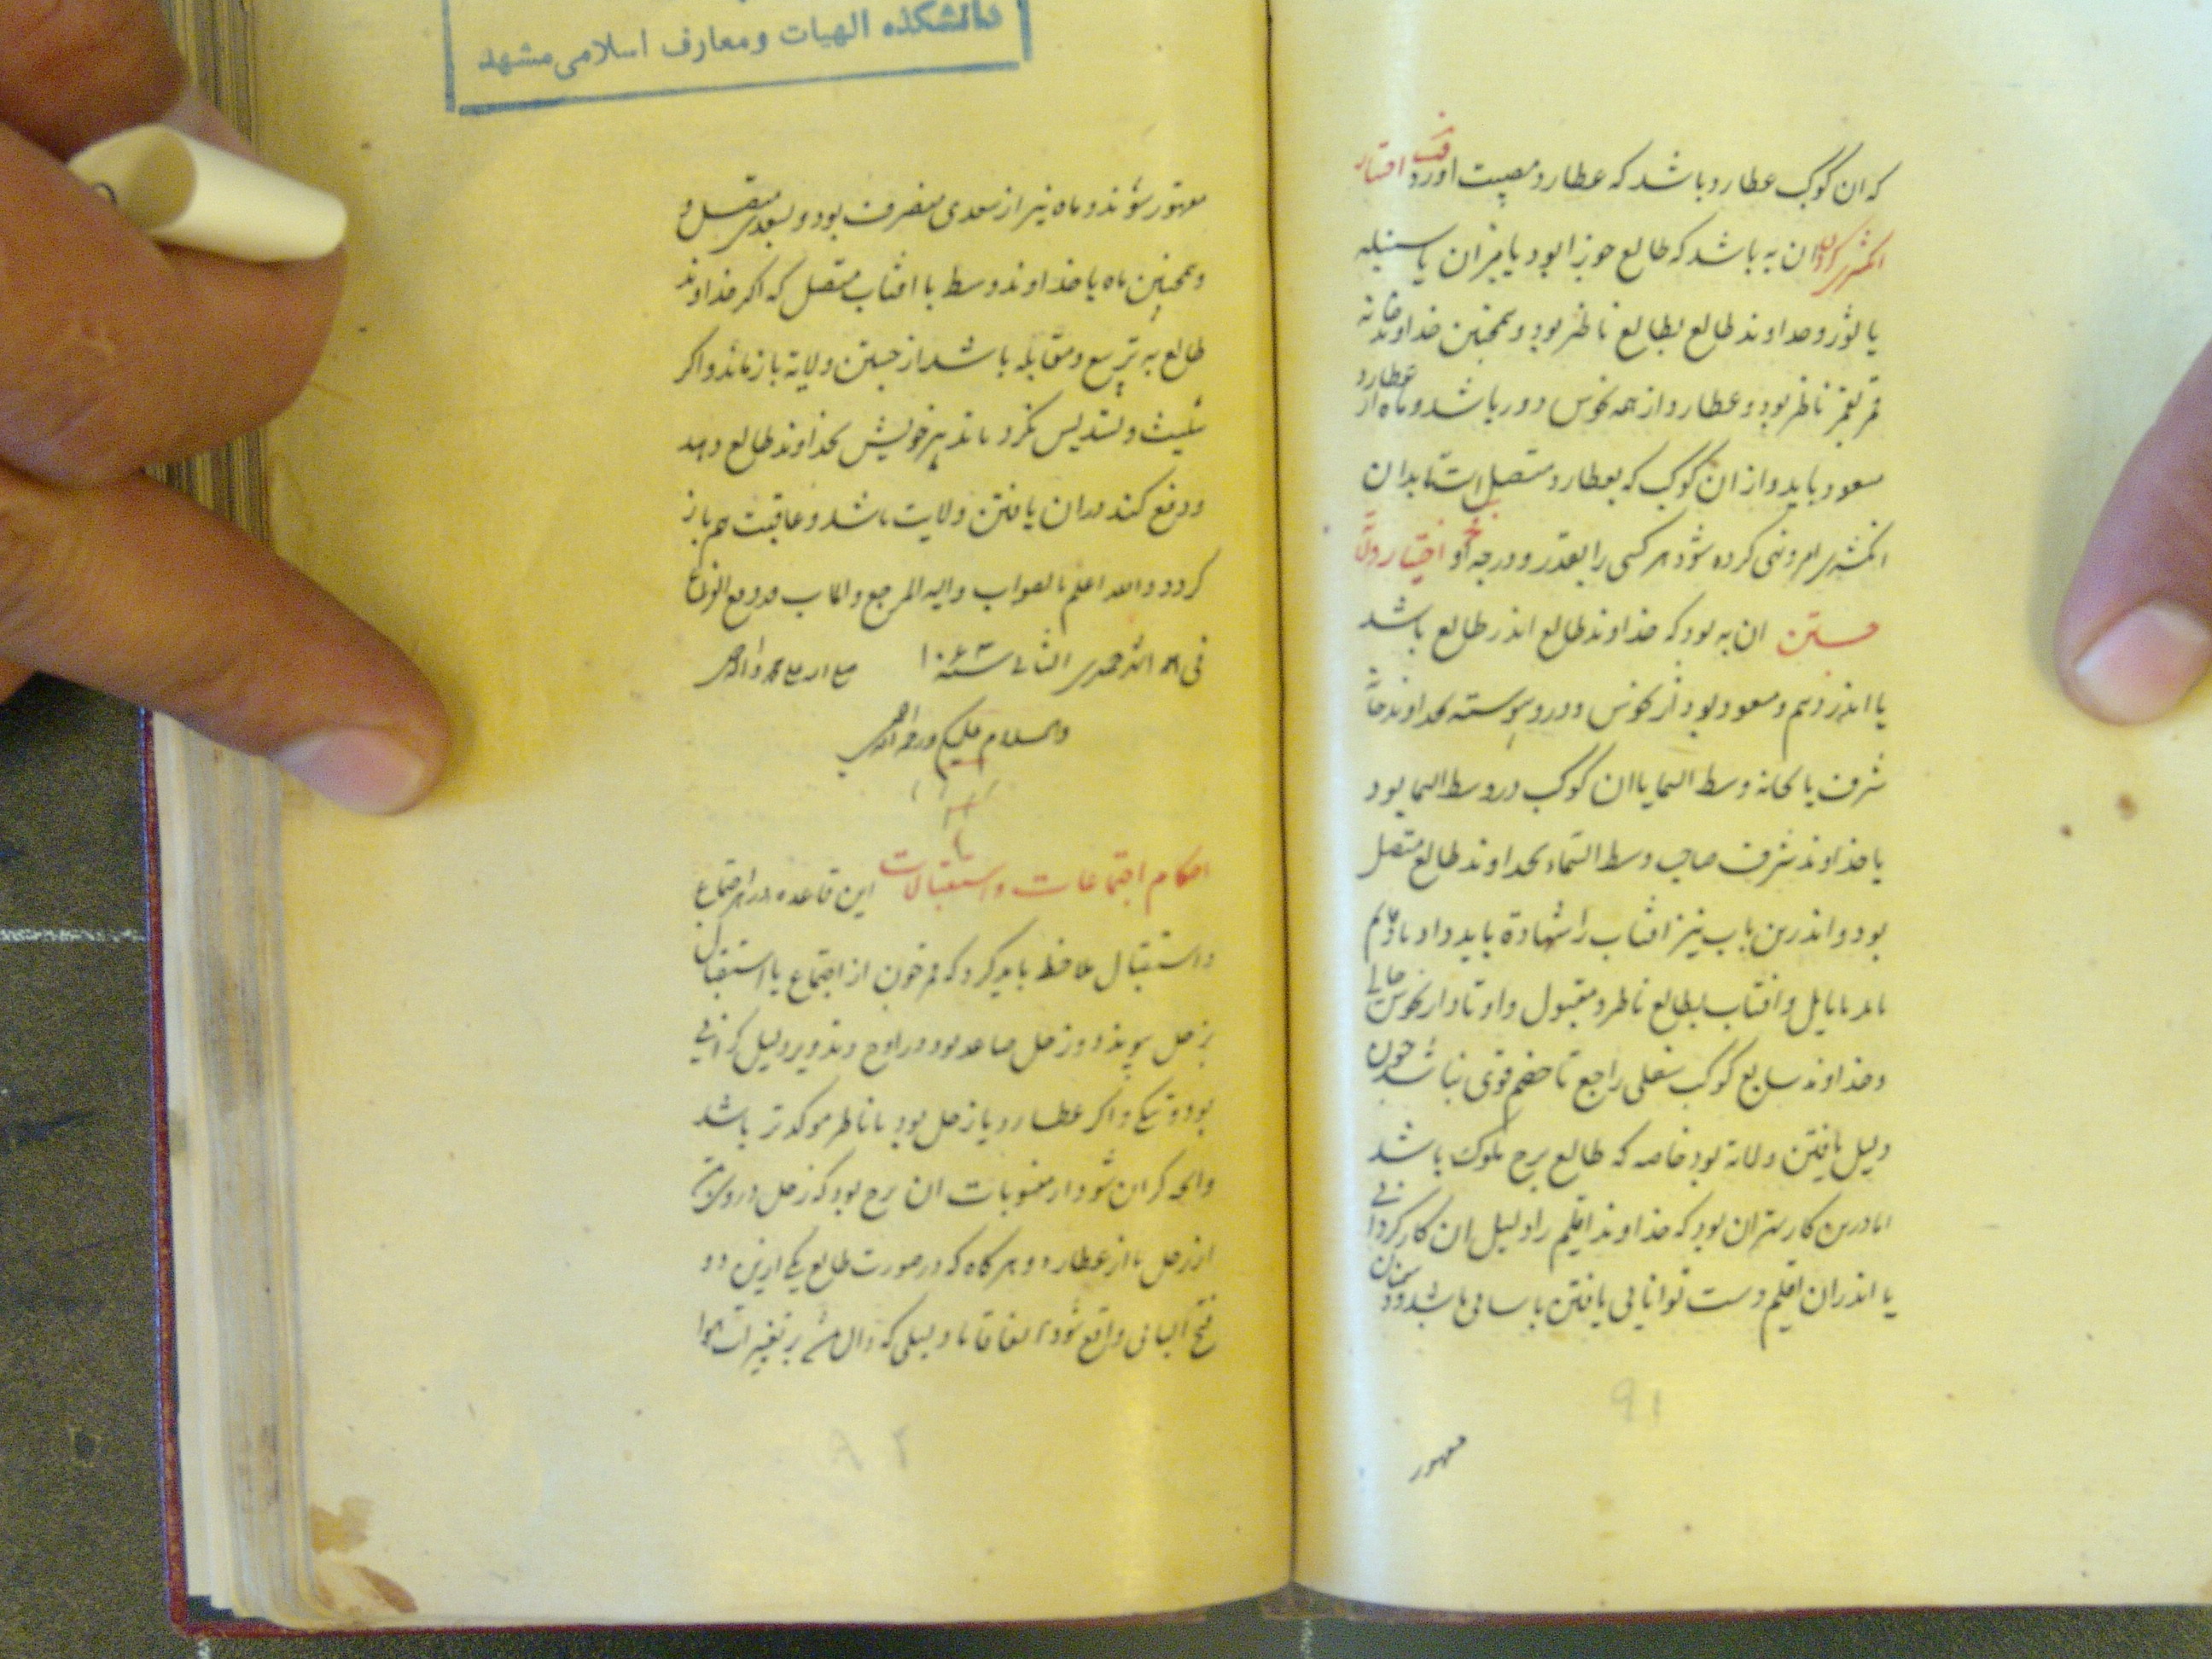 که ان کوکب عطارد باشد که عطارد مصیبت اورد اختیار
ان به باشد که طالع جوزا بود یا میزان یا سنبله
یا ثور و خداوند طالع بطالع ناظر بود و همچنین خداوند خانه
قمر بقمر ناظر بود و عطارد از همه نحوس دور باشد و ماه از عطارد
مسعود باید و از ان کوکب که بعطارد متصل است تا بدان
کرده شود هر کسی را بقدر و درجه او اختیار
جستن ان به بود که خداوند طالع اندر طالع باشد
یا اندر دهم و مسعود بود از نحوس و دور و پیوسته بخداوند خانه
شرف یا بخانه وسط السما یا ان کوکب در وسط السما بود
یا خداوند شرف صاحب وسط السماء بخداوند طالع متصل
بود و اندرین باب نیز افتاب را شهادة باید داد
مایل و افتاب بطالع ناظر و مقبول و اوتاد از نحوس خالی
و خداوند سابع کوکب سفلی راجع تا خصم قوی نباشد چون
دلیل یافتن ولایة بود خاصه که طالع برج ملوک باشد
اما درین کار بهتر ان بود که خداوند اقلیم را دلیل ان کار کردانی
یا اندران اقلیم دست توانایی یافتن باسانی باشد
مقهور
دانشکده الهیات و معارف اسلامی مشهد
مقهور شوند و ماه نیز از سعدی منصرف بود و بسعدی متصل و
و همچنین ماه یا خداوند وسط با افتاب متصل که اکر خداوند
طالع به تربیع و مقابله باشد از جستن ولایة باز ماند و اکر
تثلیث و تسدیس نکرد ماند تدبیر خویش بخداوند طالع دهد
و دفع کند دران یافتن ولایت باشد و عاقبت هم باز
کردد و الله اعلم بالصواب و الیه المرجع و الماب قد وقع الفراغ
فی الثانی سنه ۱۰۶۳
والسلام علیکم و رحمة الله
احکام اجتماعات و استقبالات این قاعده در هر اجتماع
و استقبال ملاحظه باید کرد که قمر چون از اجتماع یا استقبال
بزحل پیوندد و زحل صاعد بود در اوج و تدویر دلیل کرانی
بود و تنکی و اکر عطارد با زحل بود یا ناظر موکدتر باشد
وانچه کران شود از منسوبات ان برج بود که زحل دروست
از زحل یا از عطارد و هرکاه که در صورت طالع یکی ازین دو
فتح البابی واقع شود اتفاقا با دلیلی که دال بر تغییرات هوا
۸۲
۹۱